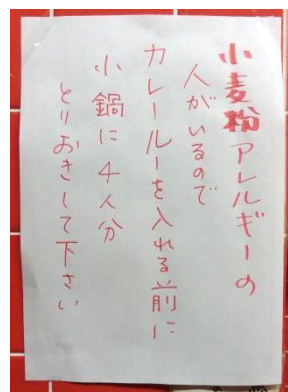 小麦粉アレルギーの
人がいるので
カレールーを入れる前に
小鍋に4人分
とりおきして下さい